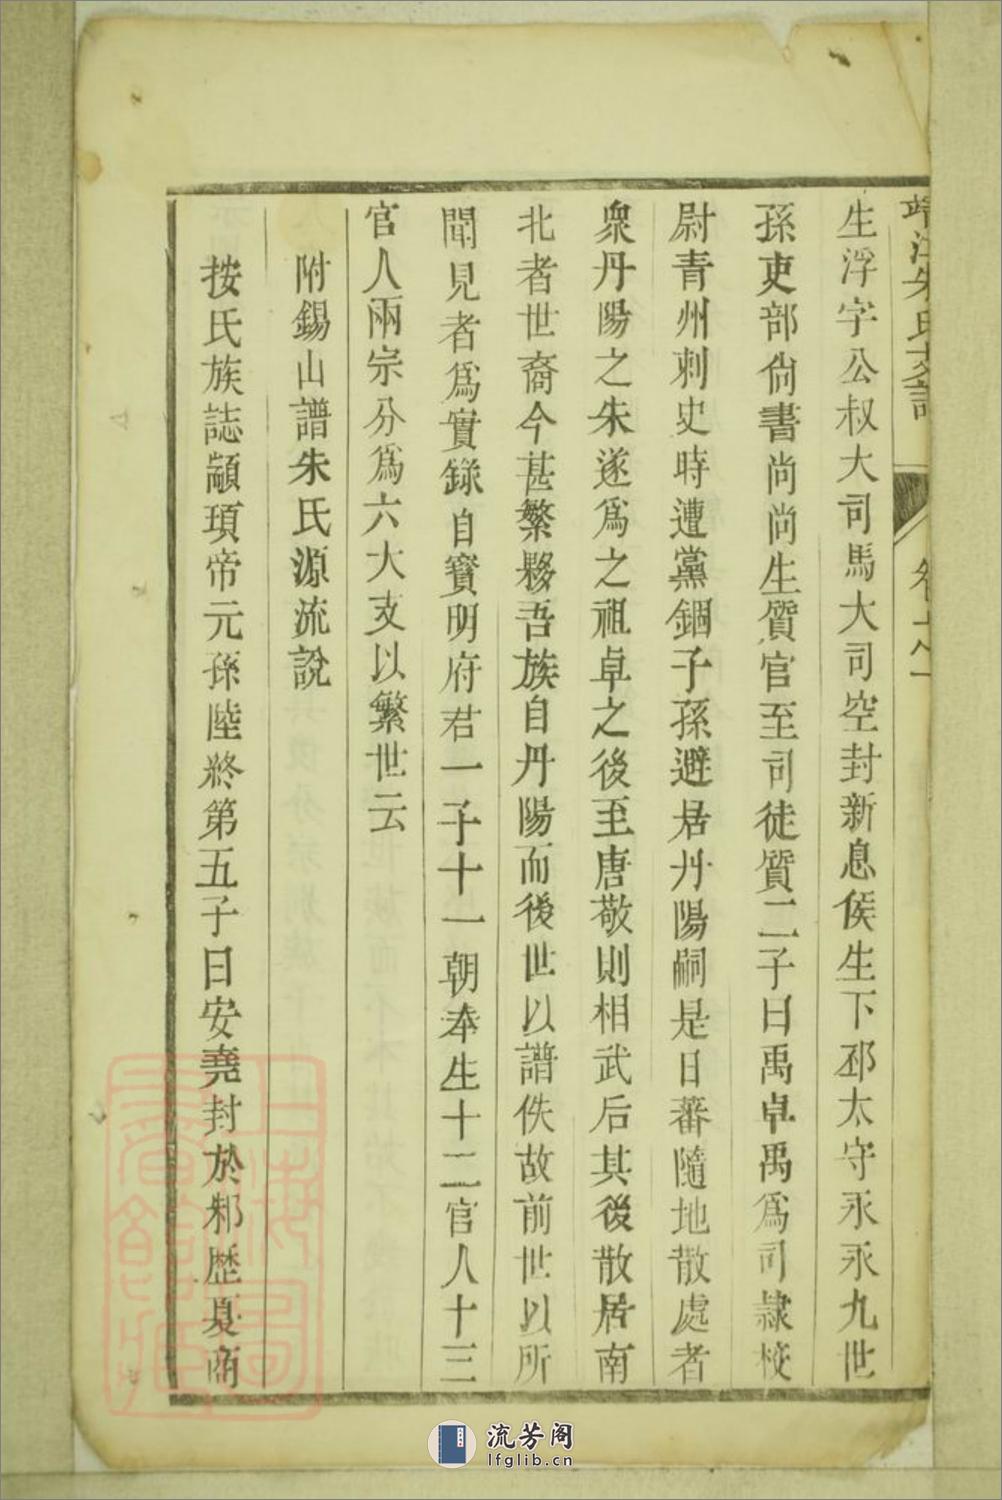 靖江朱氏支譜 卷之一
生浮字公叔大司馬大司空封新息侯生下邳太守永永九世
孫吏部尙書尚尚生質官至司徒質二子曰禹卓禹爲司隸校
尉青州刺史時遭黨錮子孫避居丹陽嗣是日蕃隨地散處者
衆丹陽之朱遂爲之祖卓之後至唐敬則相武后其後散居南
北者世裔今甚繁夥吾族自丹陽而後世以譜佚故前世以所
聞見者爲實錄自寳明府君一子十一朝奉生十二官人十三
官人兩宗分爲六大支以繁世云
附錫山譜朱氏源流說
按氏族誌顓頊帝元孫陸終第五子曰安堯封於邾歷夏商
上海圖書館藏
流芳阁
lfglib.cn